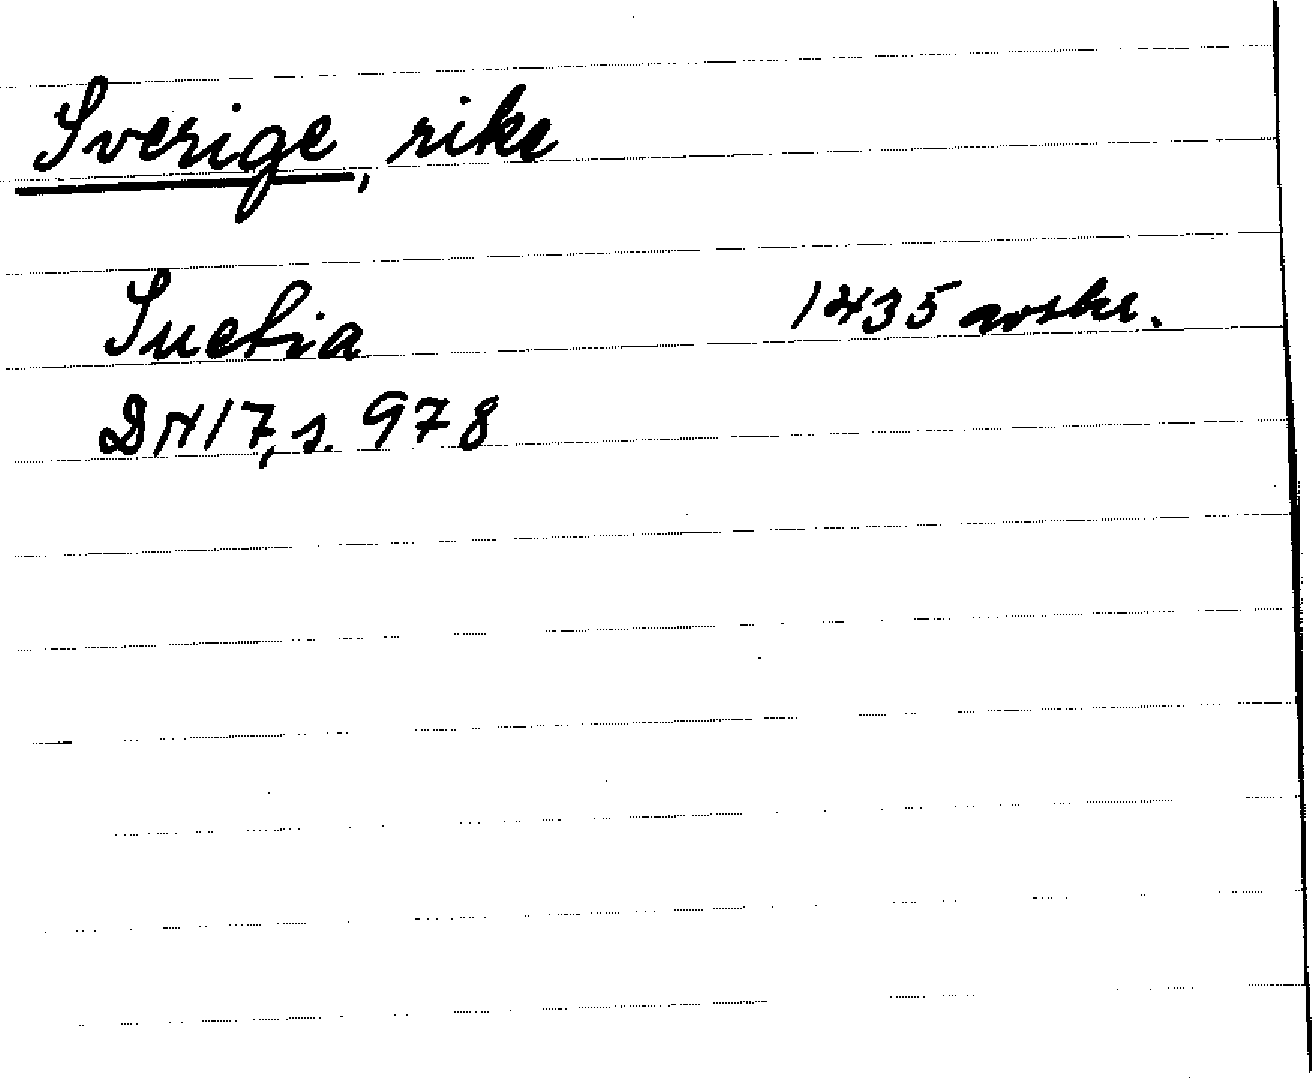 Sverige, rike
Suetia 1435 avskr.
DN 17, s. 978